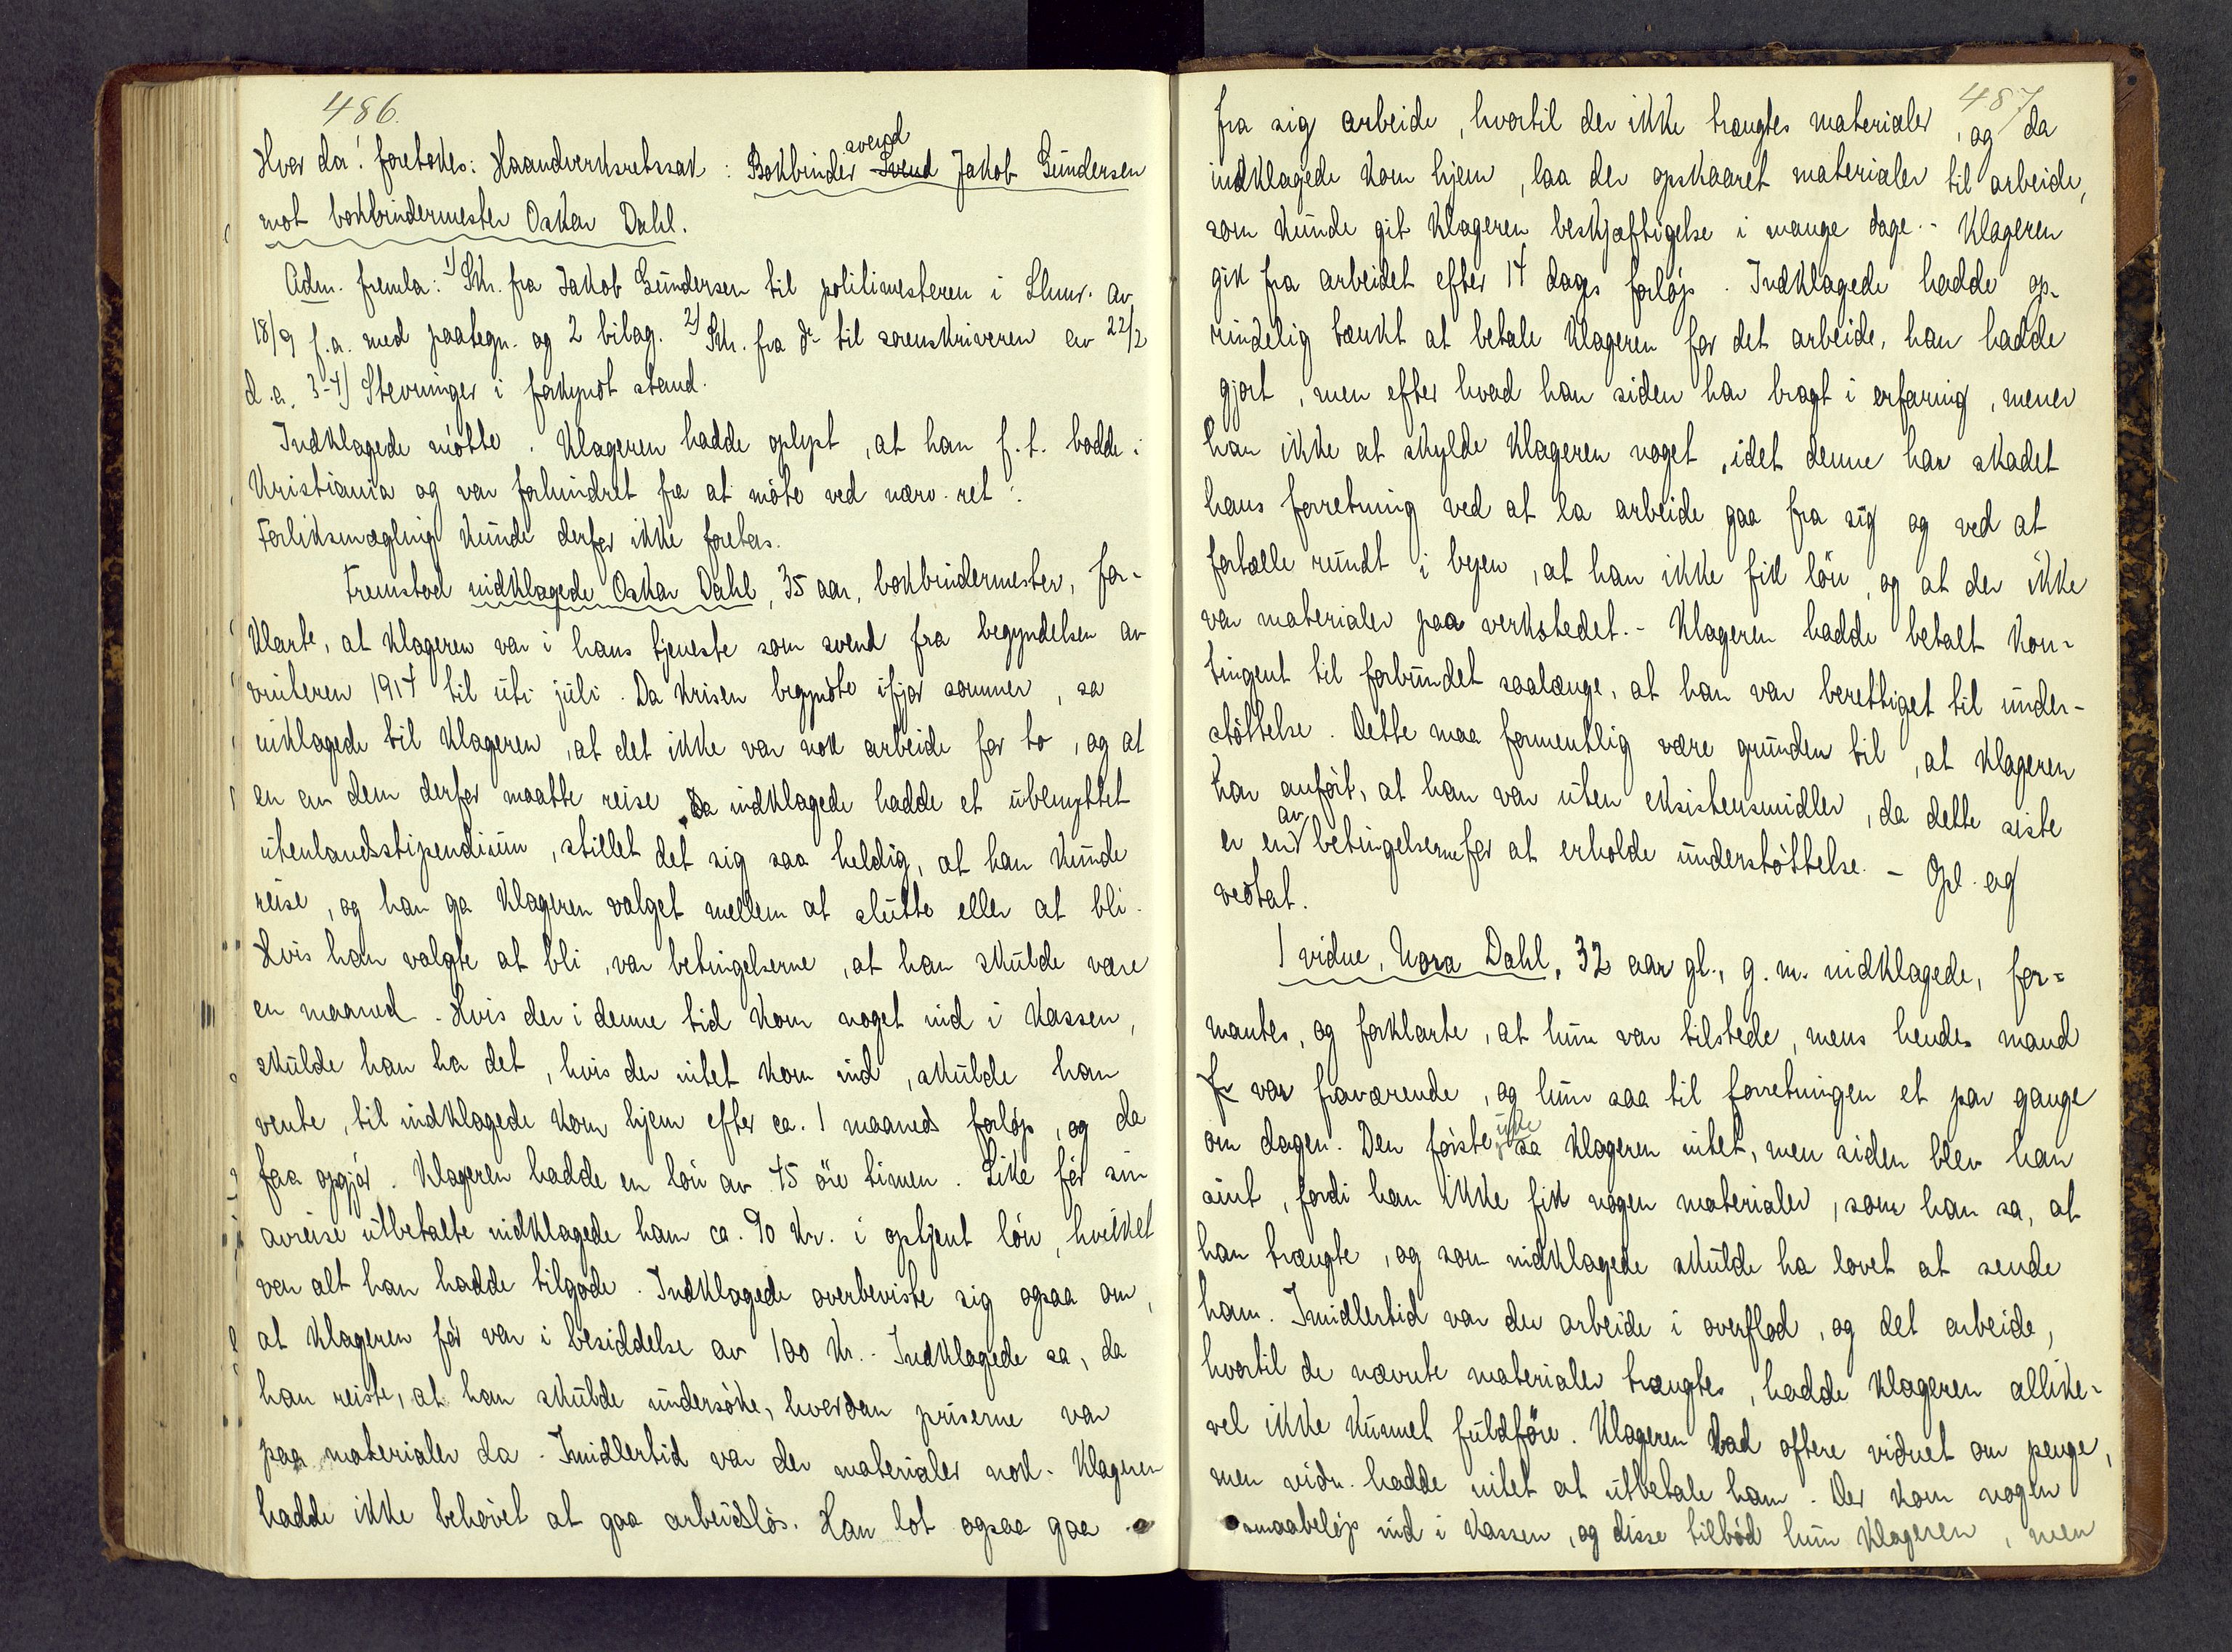 486.
Hvor da! foretokes: Haandverksretssak: Bokbinder svend Jakob Gundersen
mot bokbindermester Oskar Dahl.
Adm. fremla: 1) Skr. fra Jakob Gundersen til politimesteren i Lhmr. av
18/9 f.a. med paategn. og 2 bilag. 2) Skr. fra do til sorenskriveren av 22/2
d.a. 3-4) Stevninger i forkyndt stand.
Indklagede møtte. Klageren hadde oplyst, at han f.t. bodde i
Kristiania og var forhindret fra at møte ved nærv. ret.
Forliksmægling kunde derfor ikke foretas.
Fremstod indklagede Oskar Dahl, 35 aar, bokbindermester, for-
klarte, at klageren var i hans tjeneste som svend fra begyndelsen av
vinteren 1914 til uti juli. Da krisen begyndte ifjor sommer, sa
inklagede til klageren, at det ikke var nok arbeide for to, og at
en av dem derfor maatte reise. Da indklagede hadde et ubenyttet
utenlandsstipendium, stillet det sig saa heldig, at han kunde
reise, og han ga klageren valget mellem at slutte eller at bli.
Hvis han valgte at bli, var betingelserne, at han skulde være
en maaned. Hvis der i denne tid kom noget ind i kassen,
skulde han ha det, hvis der intet kom ind, skulde han
vente, til indklagede kom hjem efter ca. 1 maaneds forløp, og da
faa opgjør. Klageren hadde en løn av 45 øre timen. Like før sin
avreise utbetalte indklagede ham ca. 90 kr. i optjent løn, hvilket
var alt han hadde tilgode. Indklagede overbeviste sig ogsaa om,
at klageren før var i besiddelse av 100 kr. - Indklagede sa, da
han reiste, at han skulde undersøke, hvordan priserne var
paa materialer da. Imidlertid var der materialer nok. Klageren
hadde ikke behøvet at gaa arbeidsløs. Han lot ogsaa gaa
487
fra sig arbeide, hvortil der ikke trængtes materialer, og da
indklagede kom hjem, laa der opskaaret materialer til arbeide,
som kunde git klageren beskjæftigelse i mange dage. - Klageren
gik fra arbeidet efter 14 dages forløp. Indklagede hadde op-
rindelig tænkt at betale klageren for det arbeide, han hadde
gjort, men efter hvad han siden har bragt i erfaring, mener
han ikke at skylde klageren noget, idet denne har skadet
hans forretning ved at la arbeide gaa fra sig og ved at
fortælle rundt i byen, at han ikke fik løn, og at der ikke
var materialer paa verkstedet. - Klageren hadde betalt kon-
tingent til forbundet saalænge, at han var berettiget til under-
støttelse. Dette maa formentlig være grunden til, at klageren
har anført, at han var uten eksistensmidler, da dette siste
er en av betingelserne for at erholde understøttelse. - Opl. og
vedtat.
1 vidne, Nora Dahl, 32 aar gl., g. m. indklagede, for-
mantes, og forklarte, at hun var tilstede, mens hendes mand
var fraværende, og hun saa til forretningen et par gange
om dagen. Den første uke sa klageren intet, men siden blev han
sint, fordi han ikke fik nogen materialer, som han sa, at
han trængte, og som indklagede skulde ha lovet at sende
ham. Imidlertid var der arbeide i overflod, og det arbeide,
hvortil de nævnte materialer trængtes, hadde klageren allike-
vel ikke kunnet fuldføre. Klageren bad oftere vidnet om penge,
men vidn. hadde intet at utbetale ham. Der kom nogen
smaabeløp ind i kassen, og disse tilbød hun klageren, men